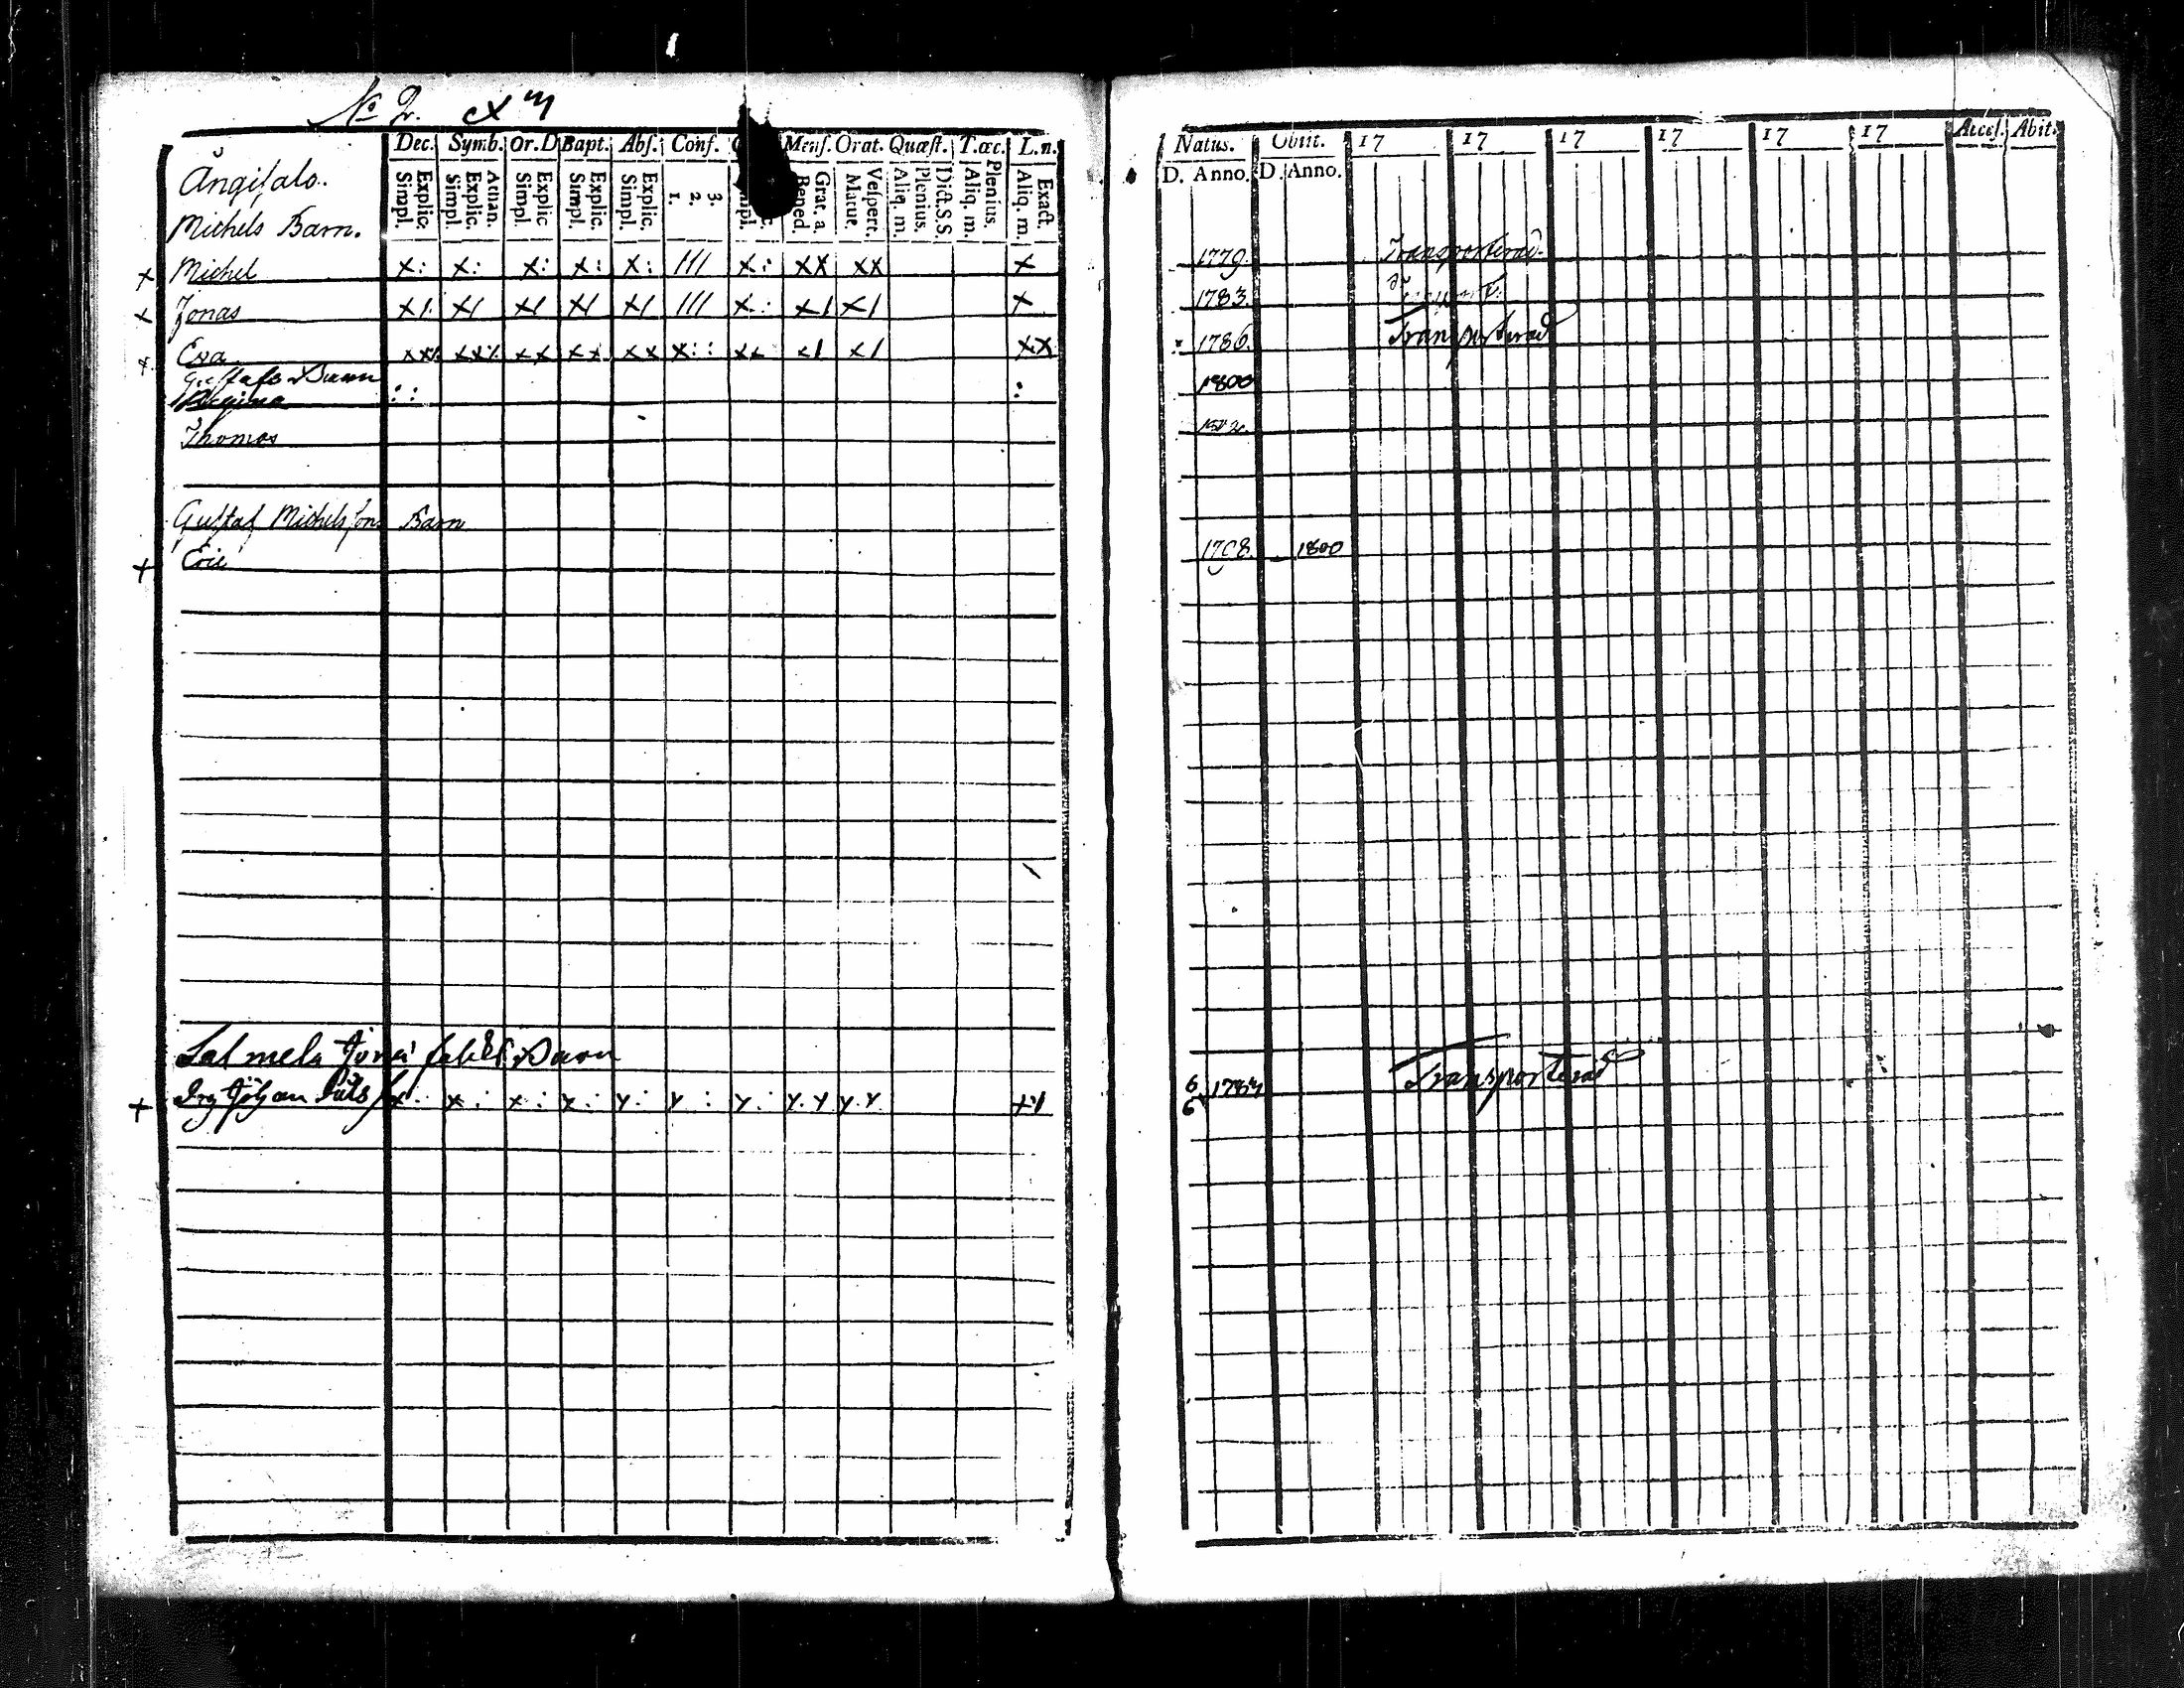 No 2.
Dec. Symb. Or.D Bapt. Abs. Conf. Mens. Orat. Quæst. T.œc. L.n.
Explic. Simpl. Athan. Explic. Simpl. Explic Simpl. Explic. Simpl. Explic. Simpl. 3. 2. 1. Grat. a. Bened. Vespert. Matut. Dict.S.S. Plenius. Aliq. m. Plenius. Aliq. m. Exact. Aliq. m.
Ångisalo.
Michels Barn.
x Michel x: x: x: x: x: /// x: xx xx x
x Jonas x/. x/ x/ x/ x/ /// x: x/ x/ x
x Eva xx xx xx xx xx x:: xx x/ x/ xx
Gustafs Barn
Regina :: :
Thomas
Gustaf Michelssons Barn
+ Eric
Salmela
+ x: x: x: y: y: y: y.y y.y
Natus. Obiit. 17 17 17 17 17 17 Accес. Abit.
D. Anno. D. Anno.
1779. Transporterad
1783.
1786. Transporterad
1800
1798. 1800
6/6 1787 Transporterad